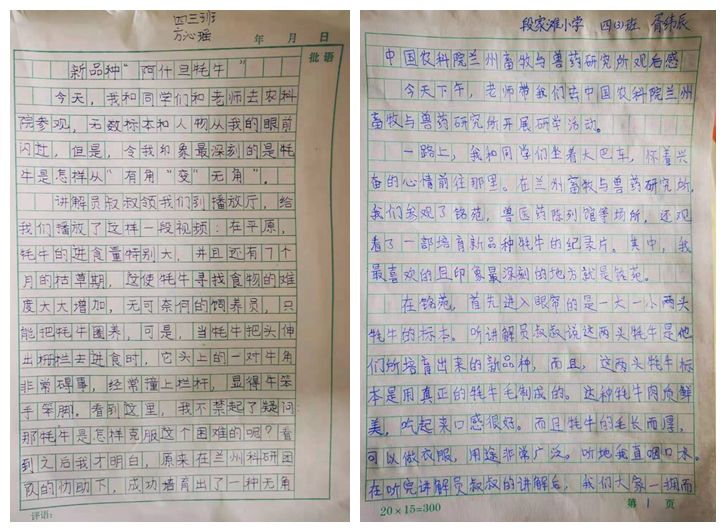 四三班
方心瑶
年 月 日
批语
新品种“阿什旦牦牛”
今天，我和同学们和老师去农科
院参观，无数标本和人物从我的眼前
闪过，但是，令我印象最深刻的是牦
牛是怎样从“有角”变“无角”。
讲解员叔叔领我们到播放厅，给
我们播放了这样一段视频：在平原，
牦牛的进食量特别大，并且还有7个
月的枯草期，这使牦牛寻找食物的难
度大大增加，无可奈何的饲养员，只
能把牦牛圈养，可是，当牦牛把头伸
出栅栏去进食时，它头上的一对牛角
非常碍事，经常撞上栏杆，显得牛笨
手笨脚。看到这里，我不禁起了疑问：
那牦牛是怎样克服这个困难的呢？看
到之后我才明白，原来在兰州科研团
队的协助下，成功培育出了一种无角
评语：
段家滩小学 四(3)班 胥纬辰
中国农科院兰州畜牧与兽药研究所观后感
今天下午，老师带我们去中国农科院兰州
畜牧与兽药研究所开展研学活动。
一路上，我和同学们坐着大巴车，怀着兴
奋的心情前往那里。在兰州畜牧与兽药研究所，
我们参观了铭苑，兽医药陈列馆等场所，还观
看了一部培育新品种牦牛的纪录片。其中，我
最喜欢的且印象最深刻的地方就是铭苑。
在铭苑，首先进入眼帘的是一大一小两头
牦牛的标本。听讲解员叔叔说这两头牦牛是他
们所培育出来的新品种，而且，这两头牦牛标
本是用真正的牦牛毛制成的。这种牦牛肉质鲜
美，吃起来口感很好。而且牦牛的毛长而厚，
可以做衣服，用途非常广泛。听地我直咽口水。
在听完讲解员叔叔的讲解后，我们大家一拥而
20×15=300
第 1 页